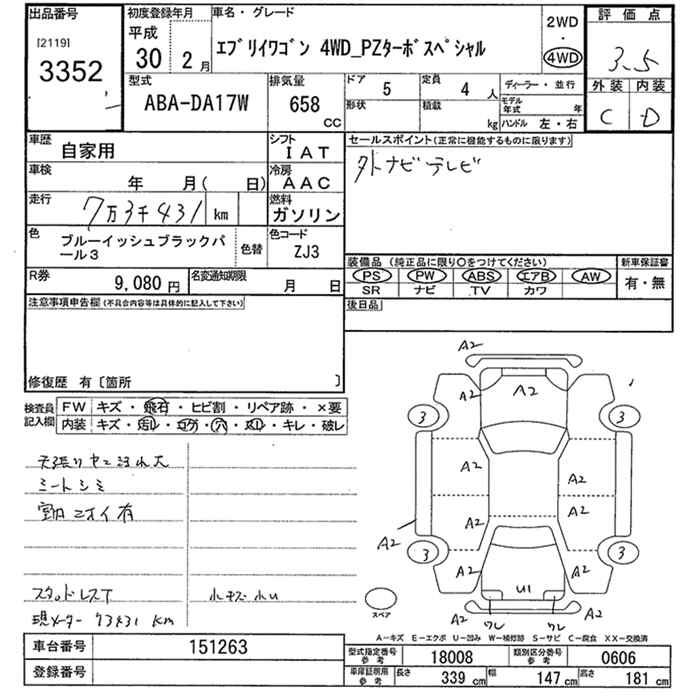 出品番号
[2119]
3352
初度登録年月
平成
30 2月
車名・グレード
エブリイワゴン 4WD_PZターボスペシャル
2WD
・
4WD
評価点
3.5
外装 内装
C D
型式
ABA-DA17W
排気量
658
CC
ドア 5
定員 4 人
形状
積載 kg
ディーラー・並行
モデル年式 年
ハンドル 左・右
車歴
自家用
シフト
IAT
車検
年 月( 日)
冷房
AAC
走行
7万3千431 km
燃料
ガソリン
色
ブルーイッシュブラックパール3
色替
色コード
ZJ3
R券
9,080 円
名変通知期限
月 日
セールスポイント(正常に機能するものに限ります)
外ナビテレビ
装備品(純正品に限り○をつけてください)
新車保証書
PS PW ABS エアB AW
SR ナビ TV カワ
有・無
後日品
注意事項申告欄(不具合内容等は具体的に記入して下さい)
修復歴 有〔箇所 〕
検査員記入欄
FW キズ・飛石・ヒビ割・リペア跡・×要
内装 キズ・汚レ・コゲ・穴・スレ・キレ・破レ
天張りヤニ汚れ大
シートシミ
室内ニオイ有
スタッドレスT
小キズ小U
現メーター 73431 km
A2
A2
A2
3
3
A2
A2
A2
A2
A2
3
3
A2
A2
U1
ワレ
ワレ
A2
スペア
A-キズ E-エクボ U-凹み W-補修跡 S-サビ C-腐食 XX-交換済
車台番号
151263
登録番号
型式指定番号
参考
18008
類別区分番号
参考
0606
車庫証明用
参考
長さ 339 cm
幅 147 cm
高さ 181 cm